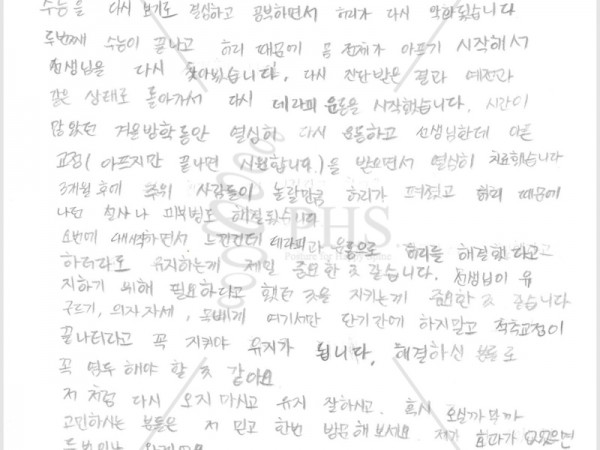 수능을 다시 보기로 결심하고 공부하면서 허리가 다시 악화됐습니다
두번째 수능이 끝나고 허리 때문에 몸 전체가 아프기 시작해서
선생님을 다시 찾아봤습니다. 다시 진단받은 결과 예전과
같은 상태로 돌아가서 다시 테라피 운동을 시작했습니다. 시간이
많았던 겨울방학동안 열심히 다시 운동하고 선생님한테 아픈
교정(아프지만 끝나면 시원합니다.)을 받으면서 열심히 치료했습니다
3개월 후에 주위 사람들이 놀랄만큼 허리가 펴졌고 허리 때문에
나던 설사나 피부병도 해결됐습니다
PHS
요번에 재생활하면서 느낀건데 테라피과 운동으로 허리를 해결했다고
하더라도 유지하는게 제일 중요한 것 같습니다. 선생님이 유
지하기 위해 필요하다고 했던 것을 지키는게 중요한 것 같습니다
구르기, 의자자세, 목베개 여기서만 단기간에 하지말고 척추교정이
끝나더라고 꼭 지켜야 유지가 됩니다. 해결하신 분들로
꼭 염두해야 할 것 같아요
저 처럼 다시 오지 마시고 유지 잘하시고. 혹시 오실까 말까
고민하시는 분들은 저 믿고 한번 방문해 보세요 제가 효과가 없었으면